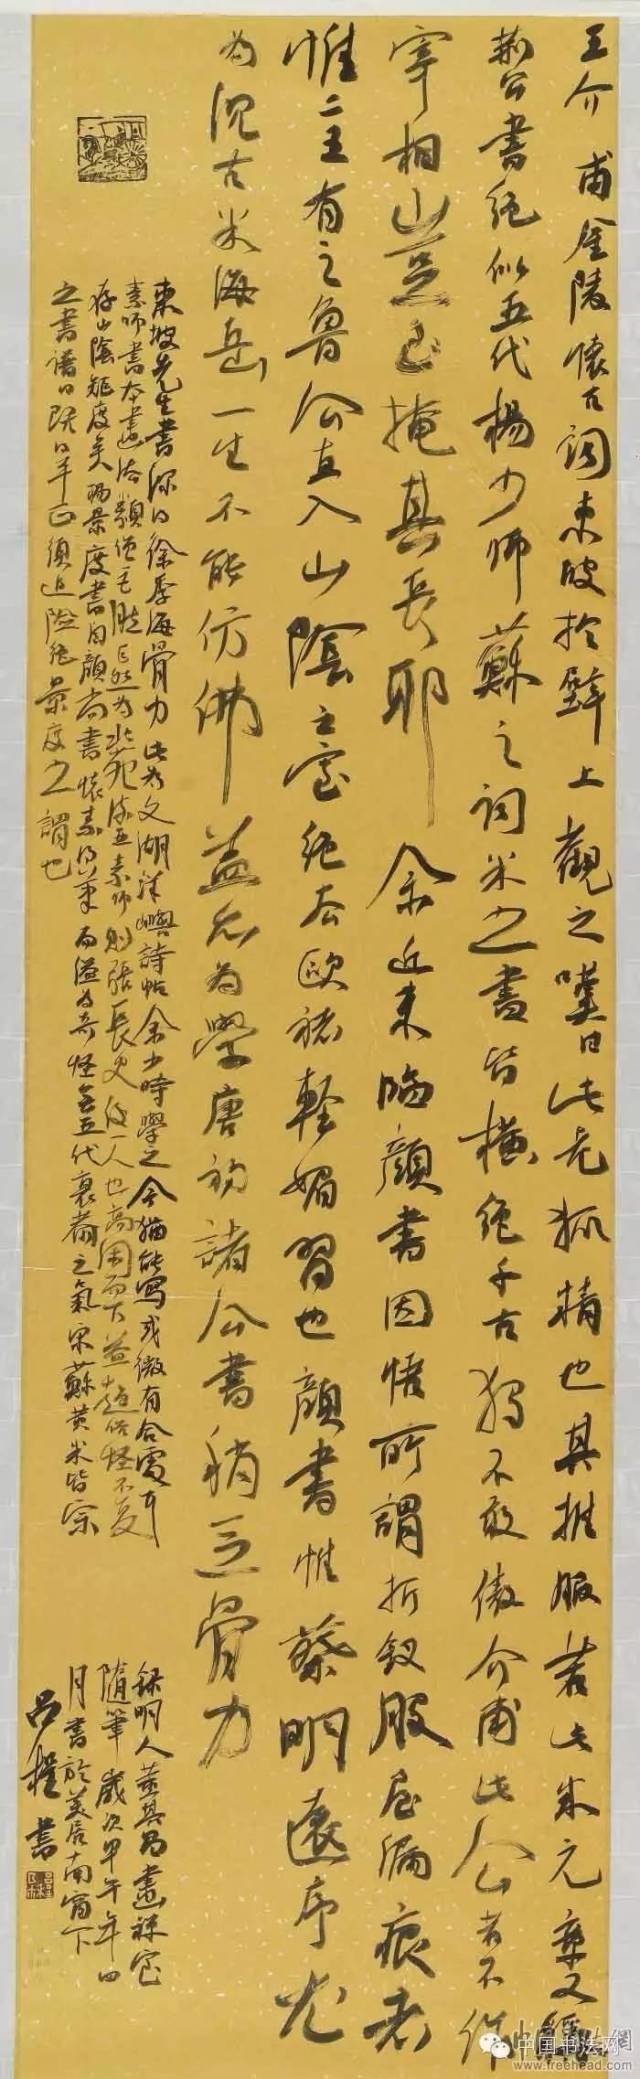 王介甫金陵懷古詞東坡於壁上觀之嘆曰此老狐精也其推服若此米元章又稱
荊公書絕似五代楊少師蘇之詞米之書皆橫絕千古獨不敢傲介甫此公若不作
宰相豈至掩其長耶余近來臨顏書因悟所謂折釵股屋漏痕者
惟二王有之魯公直入山陰之室絕去歐褚輕媚習也顏書惟蔡明遠序尤
為沉古米海岳一生不能仿佛蓋亦為學唐初諸公書稍乏骨力
東坡先生書深得徐季海骨力此為文湖洋嶼詩帖余少時學之今猶能寫或微有合處耳
素師書本畫法類僧巨然巨然為北苑流亞素師則張長史後一人也高閑而下益趨俗怪不復
存山陰矩度矣楊景度書自顏尚書懷素得筆而溢為奇怪無五代衰薾之氣宋蘇黃米皆宗
之書譜曰既得平正須追險絕景度之謂也
錄明人董其昌畫禪室
隨筆歲次甲午年四
月書於美居南窗下
呂程書
中国书法网
www.freehead.com